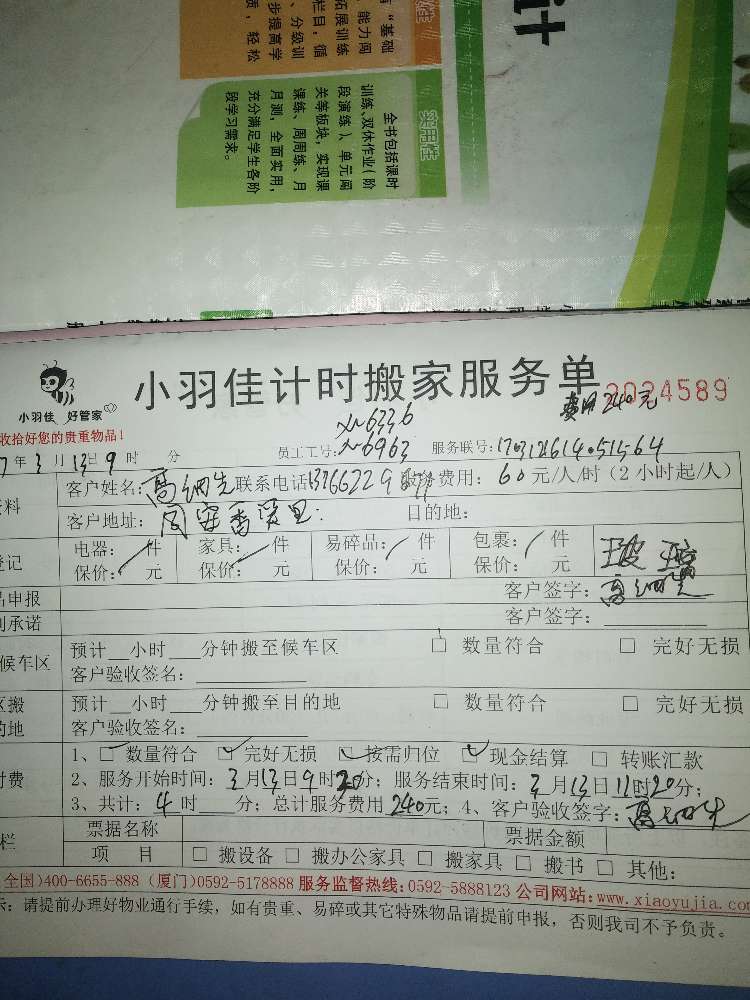 “基础
、能力闯
拓展训练
栏目，循
、分级训
步提高学
质，轻松
实用性
全书包括课时
训练、双休作业（阶
段演练）、单元闯
关等板块，实现课
课练、周周练、月
月测，全面实用，
充分满足学生各阶
段学习需求。
计
小羽佳 好管家
小羽佳计时搬家服务单
2024589
费用240元
收拾好您的贵重物品！
7年3月13日9时 分
员工工号：
XN-6336
N-6963
服务联号：
资料
客户姓名：高细先 联系电话 服务费用：60元/人/时（2小时起/人）
客户地址：同安 里 目的地：
登记
电器： 件 家具： 件 易碎品： 件 包裹： 件
保价： 元 保价： 元 保价： 元 保价： 元
玻璃
品申报
客户签字：高细先
承诺
客户签字：
候车区
预计__小时___分钟搬至候车区 □ 数量符合 □ 完好无损
客户验收签名：
区搬
的地
预计__小时___分钟搬至目的地 □ 数量符合 □ 完好无损
客户验收签名：
付费
1、☑数量符合 ☑完好无损 ☑按需归位 ☑现金结算 □ 转账汇款
2、服务开始时间：3月13日9时20分；服务结束时间：3月13日11时20分；
3、共计：4时___分；总计服务费用240元；4、客户验收签字：高细先
栏
票据名称 票据金额
项 目 □ 搬设备 □ 搬办公家具 □ 搬家具 □ 搬书 □ 其他：
全国)400-6655-888 (厦门)0592-5178888 服务监督热线:0592-5888123 公司网站:www.xiaoyujia.com
示：请提前办理好物业通行手续，如有贵重、易碎或其它特殊物品请提前申报，否则我司不予负责。